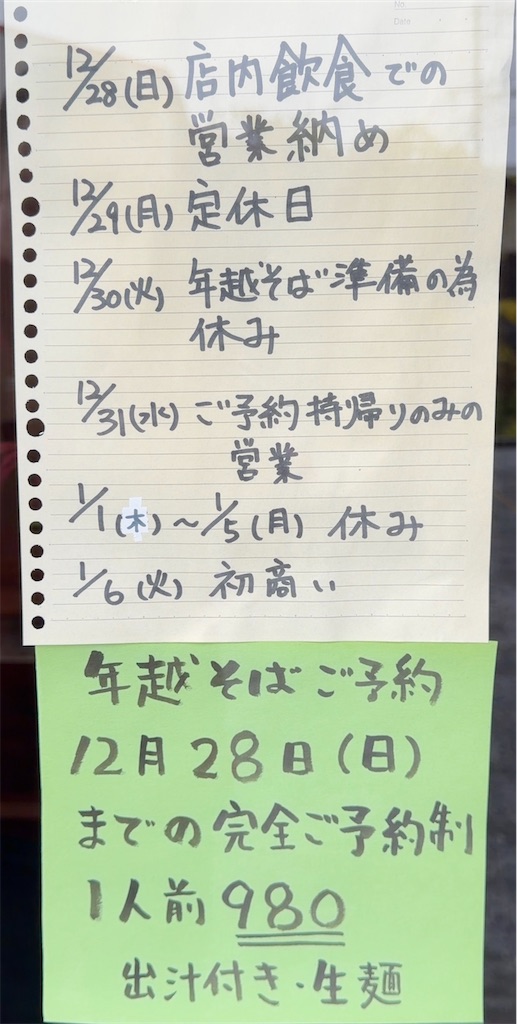 No.
Date
12/28(日) 店内飲食での
営業納め
12/29(月) 定休日
12/30(火) 年越そば準備の為
休み
12/31(水) ご予約持帰りのみの
営業
1/1(木)~1/5(月) 休み
1/6(火) 初商い
年越そばご予約
12月28日(日)
までの完全ご予約制
1人前 980
出汁付き・生麺